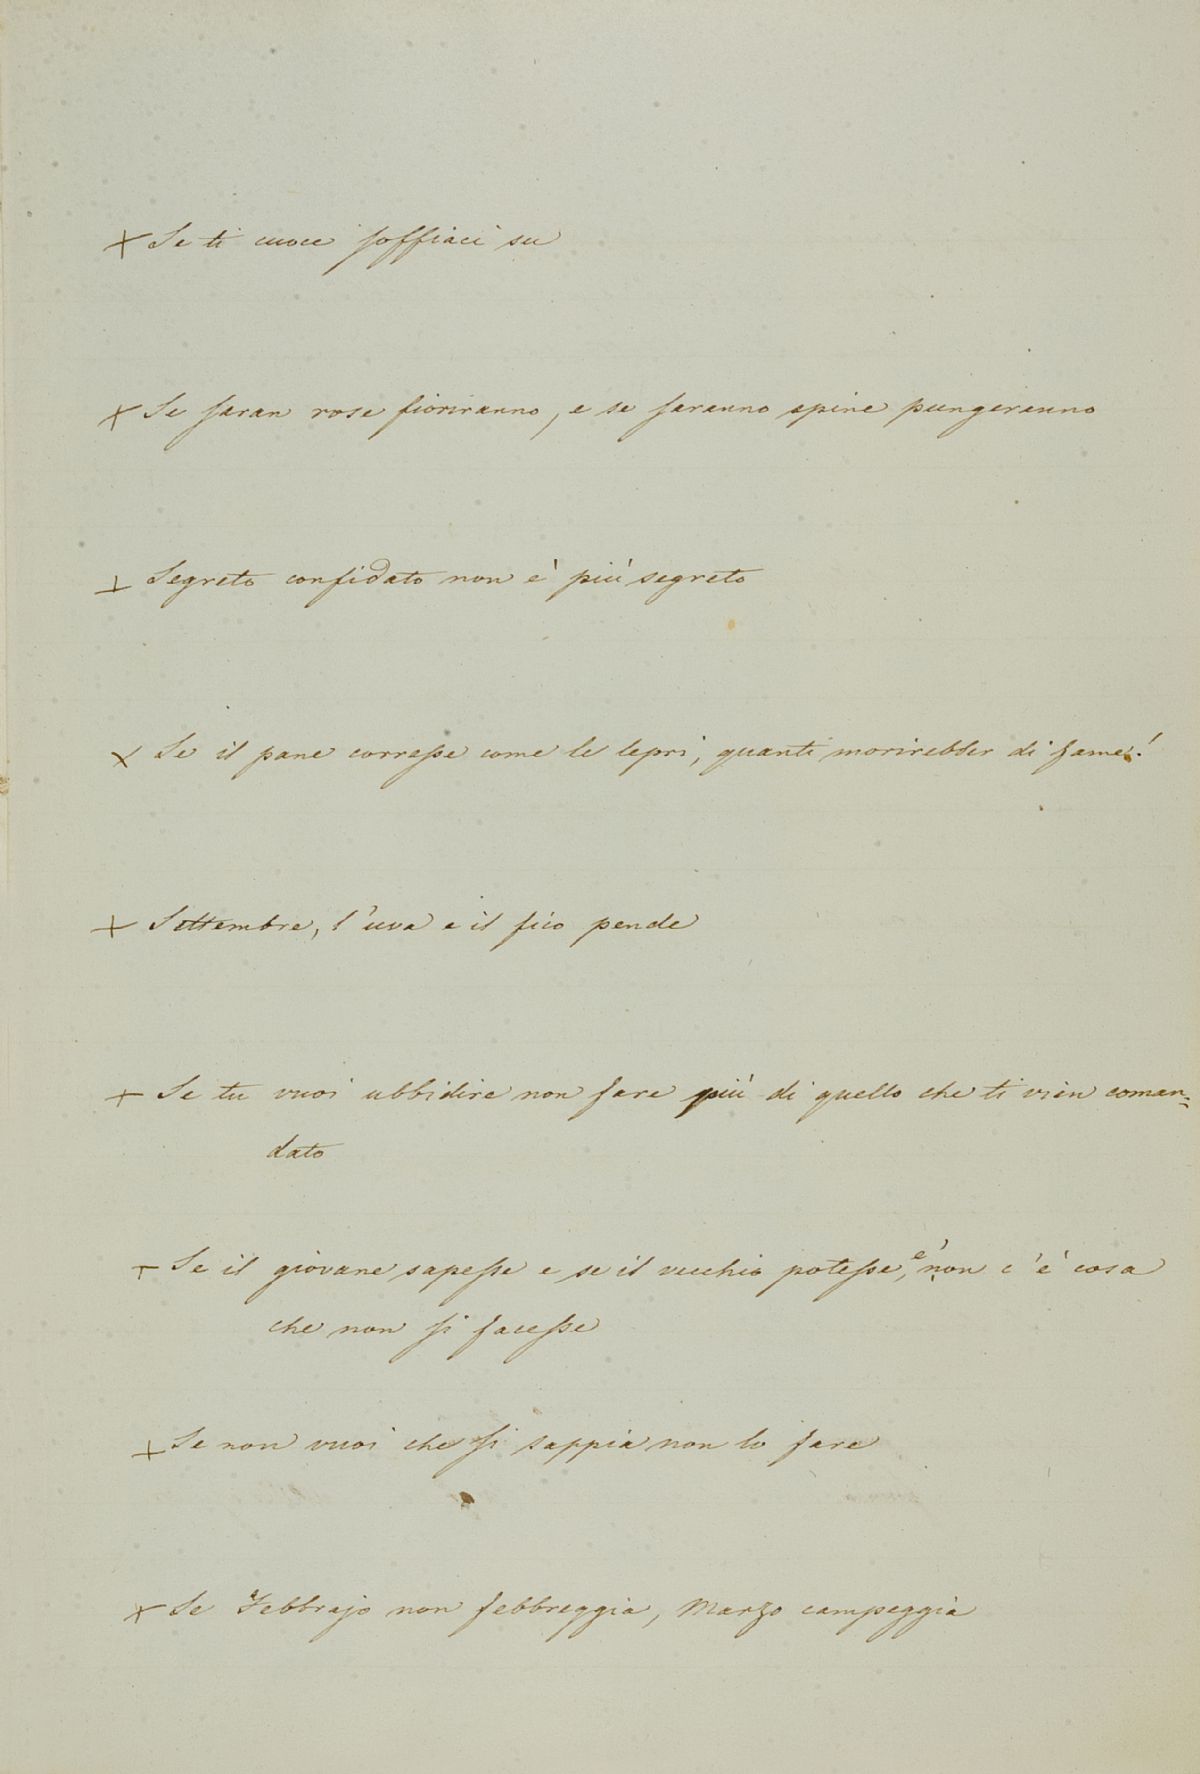 + Se ti cuoce soffiaci su
+ Se saran rose fioriranno, e se saranno spine pungeranno
+ Segreto confidato non è più segreto
+ Se il pane corresse come le lepri, quanti morirebber di fame!
+ Settembre, l'uva e il fico pende
+ Se tu vuoi ubbidire non fare più di quello che ti vien coman=
dato
+ Se il giovane sapesse e se il vecchio potesse, e' non c'è cosa
che non si facesse
+ Se non vuoi che si sappia non lo fare
+ Se Febbrajo non febbreggia, Marzo campeggia